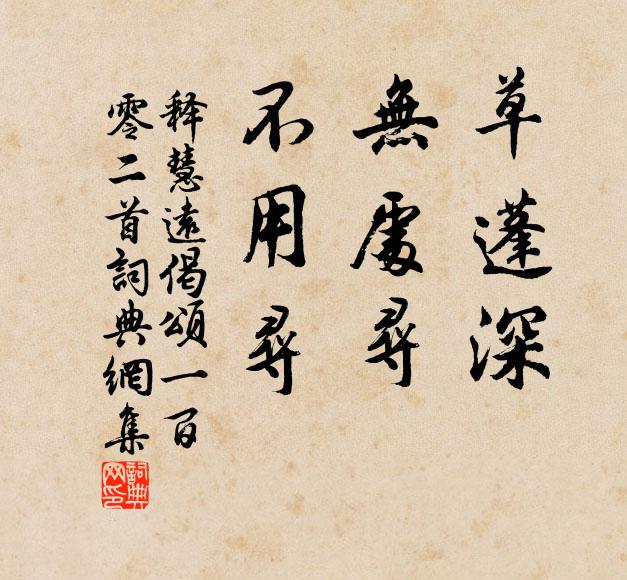 草蓬深
無處尋
不用尋
释慧遠偈頌一百
零二首詞典網集
詞典网印